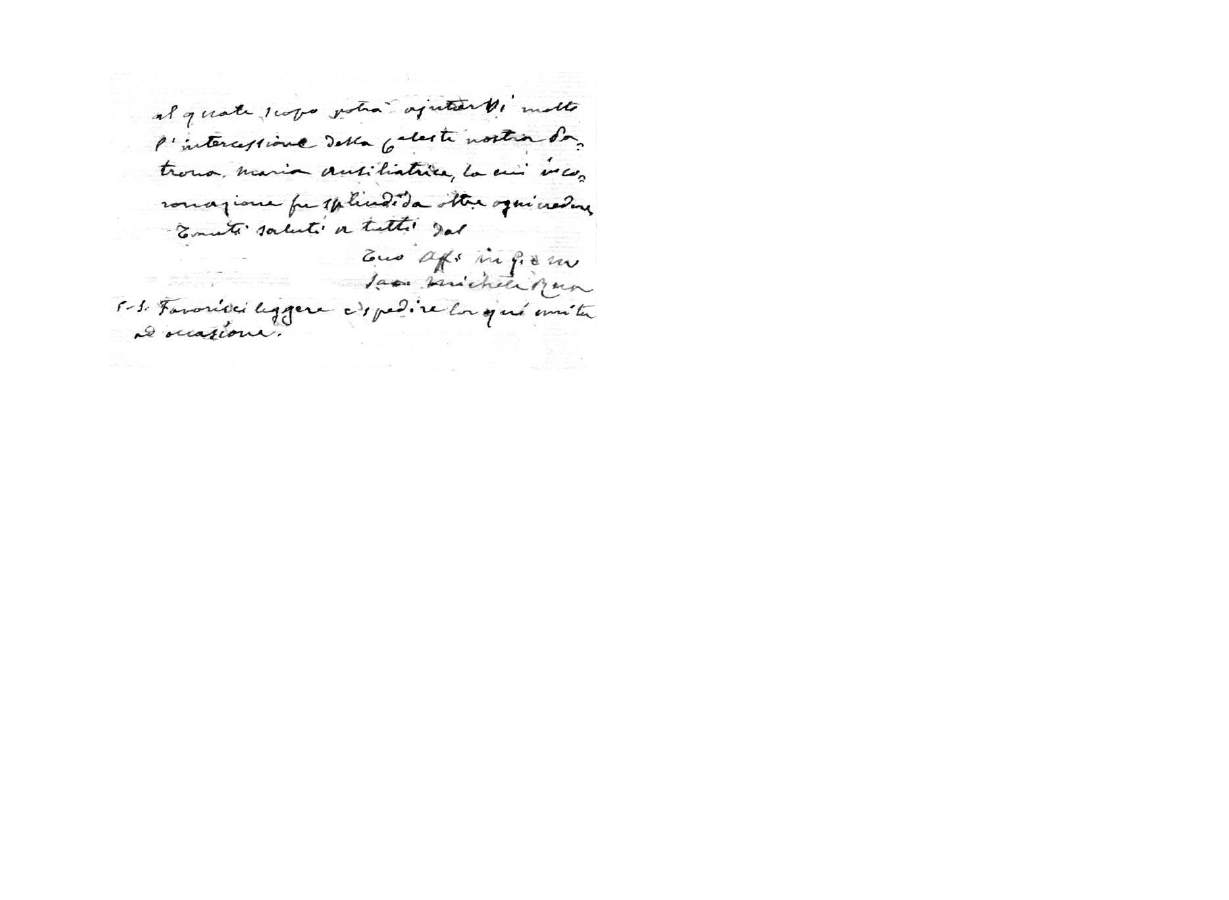 al quale scopo potrà ajutarVi molto
l'intercessione della Celeste nostra Pa=
trona, Maria Ausiliatrice, la cui inco=
ronazione fu splendida oltre ogni credere
Tanti saluti a tutti dal
Tuo Aff. in G. e M.
Sac. Michele Rua
P.S. Favorisci leggere e spedire la qui unita
ad occasione.